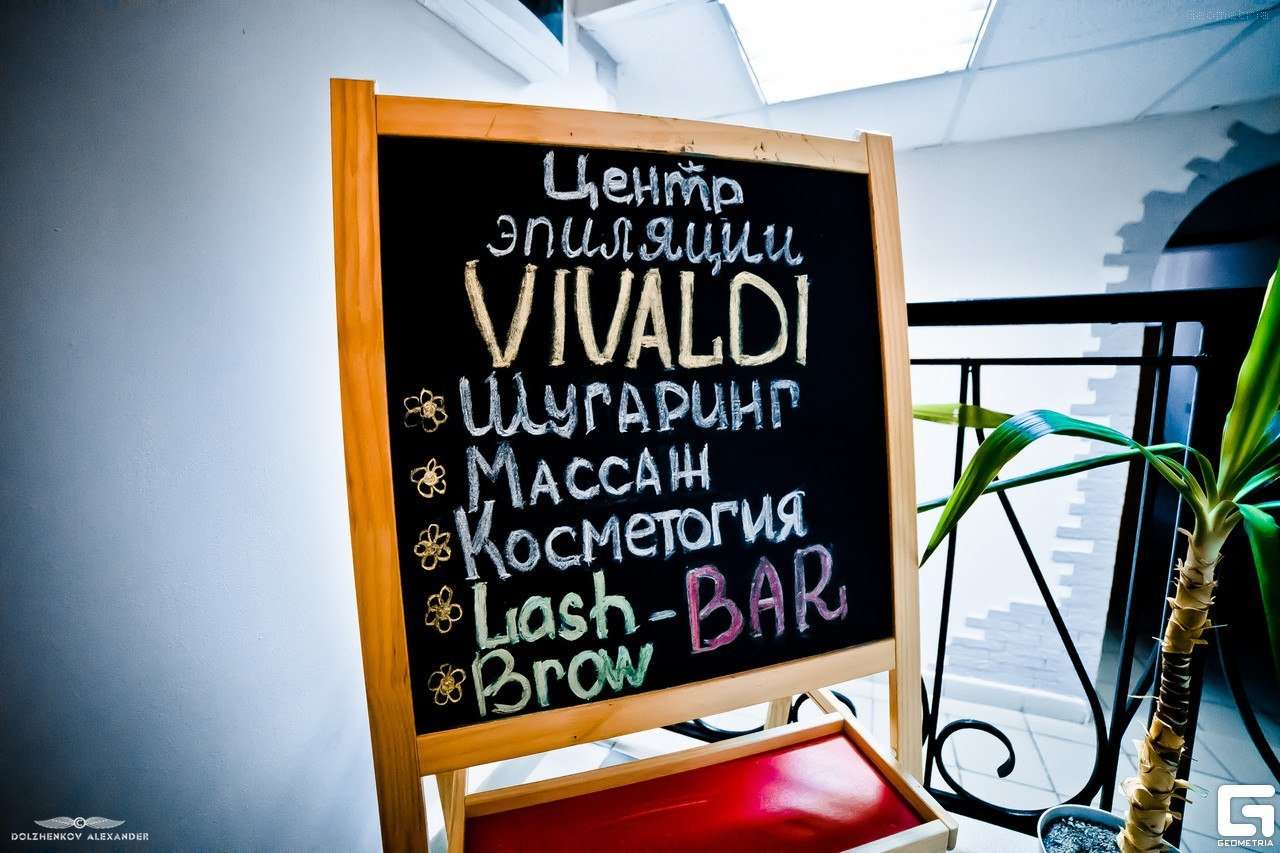 Geometria
Центр
эпиляции
VIVALDI
Шугаринг
Массаж
Косметогия
Lash - BAR
Brow
DOLZHENKOV ALEXANDER
GEOMETRIA